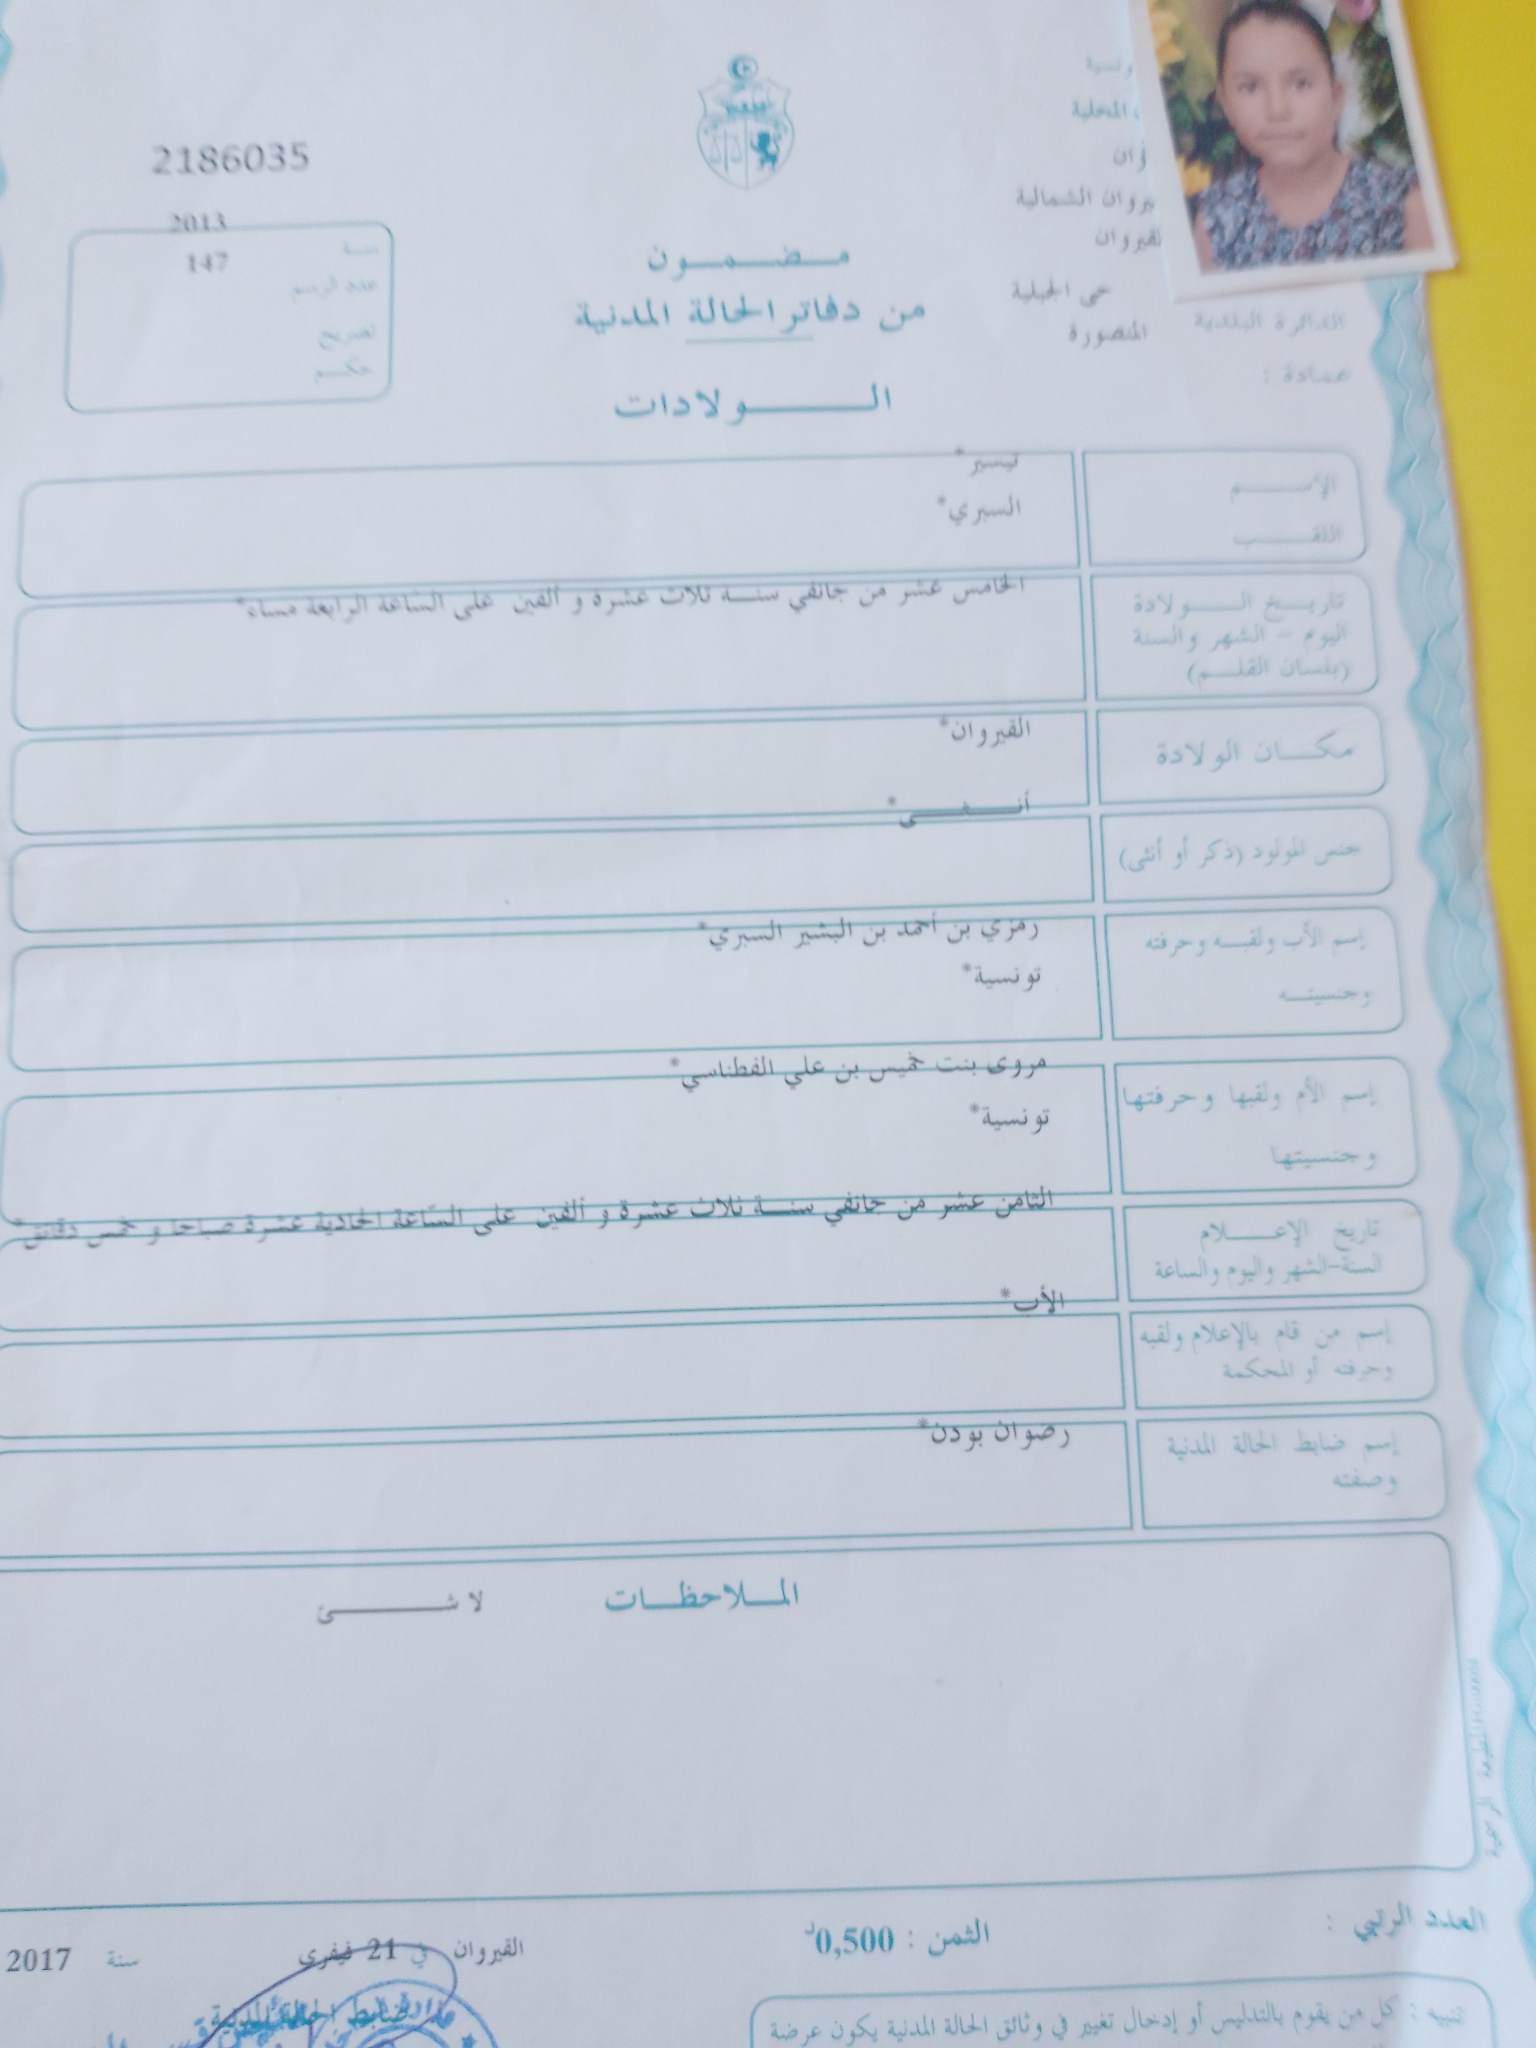 ونسية
المحلية
وان
يروان الشمالية
لقيروان
حي الجبلية
الدائرة البلدية
المنصورة
عمادة :
2186035
2013
سنة
147
عدد الرسم
تصريح
حكم
مضمون
من دفاتر الحالة المدنية
الولادات
الإسم
تيسير*
اللقب
السبري*
تاريخ الولادة
اليوم - الشهر والسنة
(بلسان القلم)
الخامس عشر من جانفي سنة ثلاث عشرة و ألفين على السّاعة الرابعة مساء*
مكان الولادة
القيروان*
جنس المولود (ذكر أو أنثى)
أنثى*
إسم الأب ولقبه وحرفته
وجنسيته
رمزي بن أحمد بن البشير السبري*
تونسية*
إسم الأم ولقبها وحرفتها
وجنسيتها
مروى بنت خميس بن علي الفطناسي*
تونسية*
تاريخ الإعلام
السنة-الشهر واليوم والساعة
الثامن عشر من جانفي سنة ثلاث عشرة و ألفين على السّاعة الحادية عشرة صباحا و خمس دقائق*
إسم من قام بالإعلام ولقبه
وحرفته أو المحكمة
الأب*
إسم ضابط الحالة المدنية
وصفته
رضوان بودن*
الملاحظات
لا شئ
العدد الرتبي :
الثمن : 0,500د
القيروان في 21 فيفري سنة 2017
ضابط الحالة المدنية
تنبيه : كل من يقوم بالتدليس أو إدخال تغيير في وثائق الحالة المدنية يكون عرضة